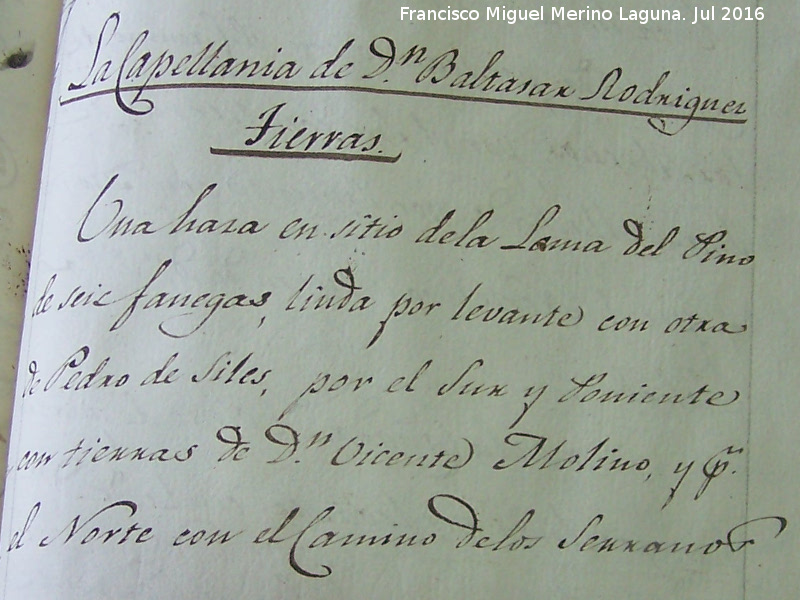 Francisco Miguel Merino Laguna. Jul 2016
La Capellania de D.n Baltasar Rodriguez
Tierras.
Una haza en sitio dela Loma del Pino
de seis fanegas, linda por levante con otra
de Pedro de Siles, por el Sur y Poniente
con tierras de D.n Vicente Molino, y p.r
el Norte con el Camino delos Serranos